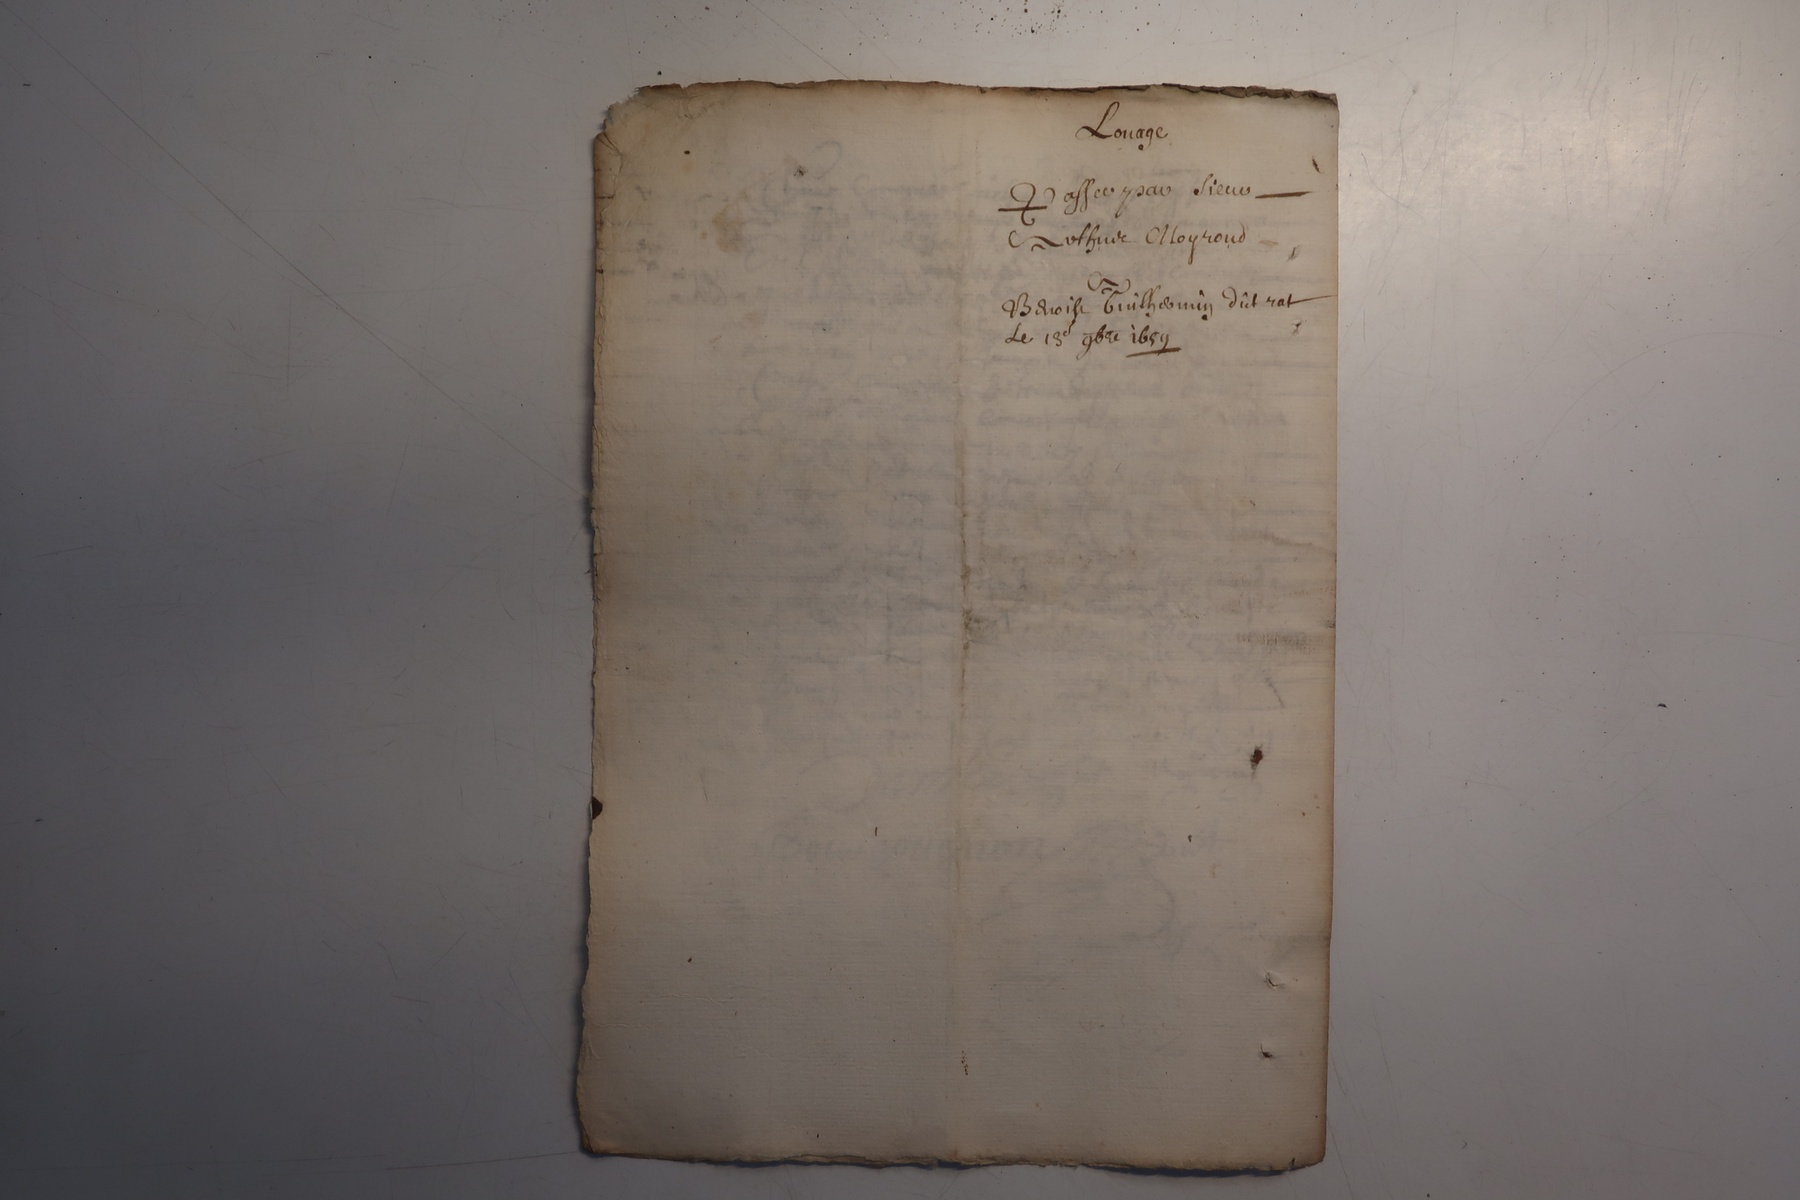 Louage
Passe par Sieur
Arthur Moyroud
A
Benoist Guilhermin dit rat
Le 13e 9bre 1659